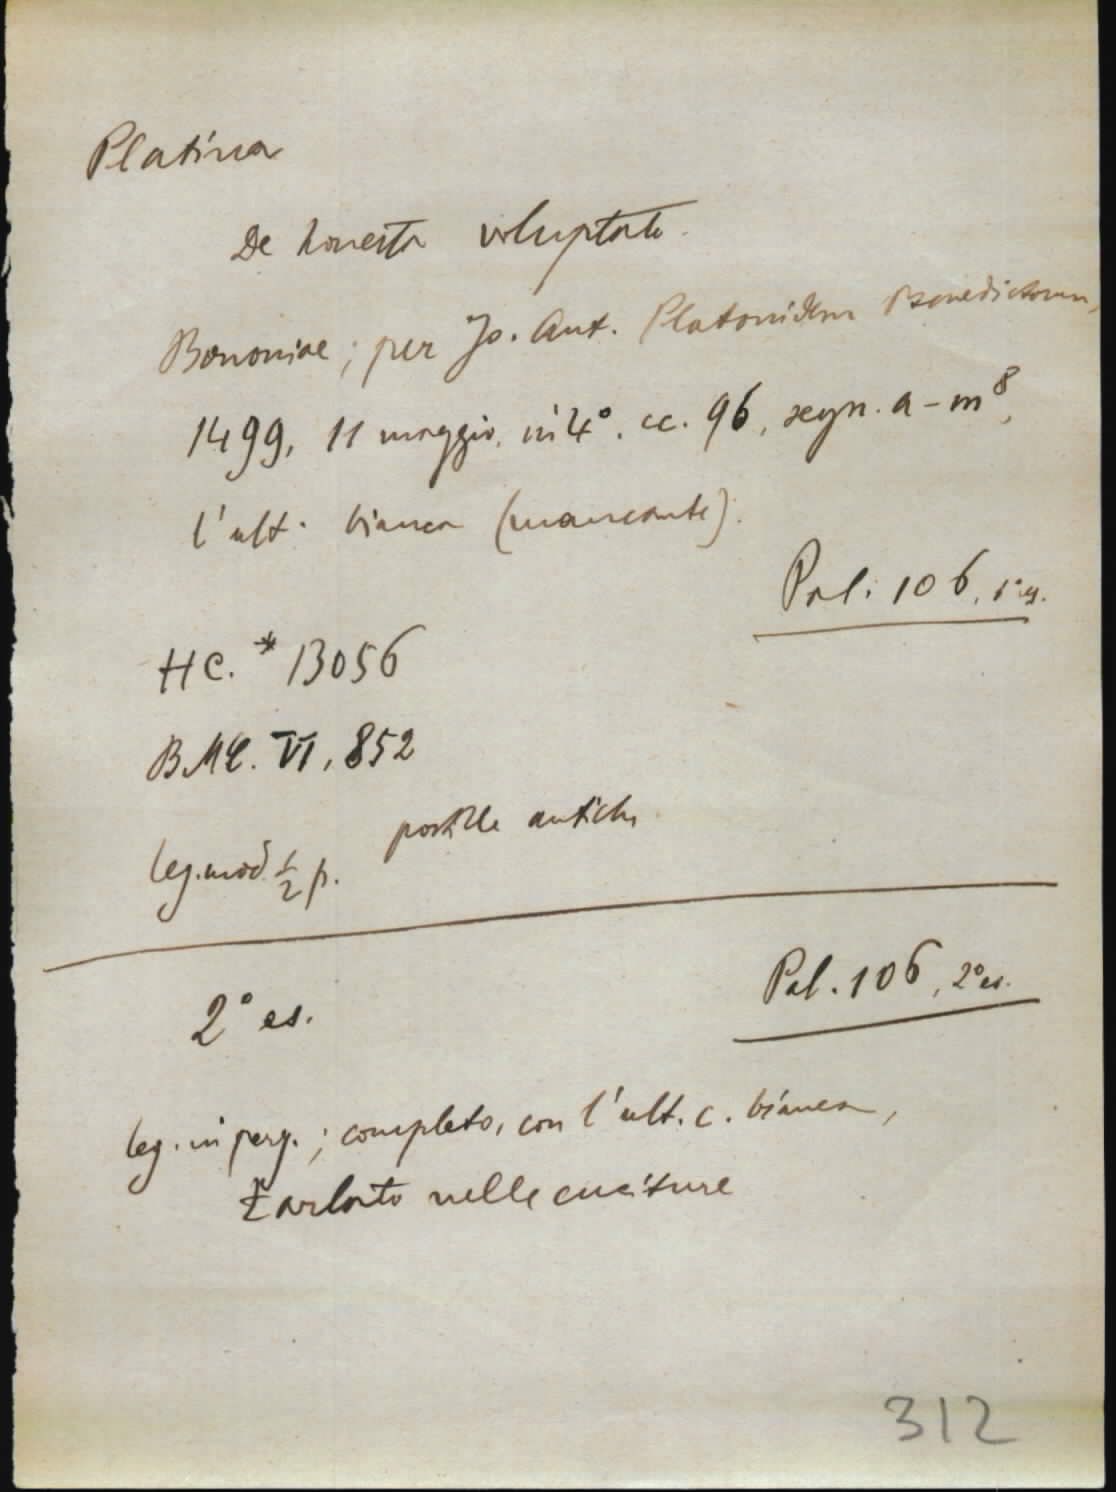 Platina
De honesta voluptate.
Bononiae; per Jo. Ant. Platonidem Benedictorum,
1499, 11 maggio, in 4°. cc. 96, segn. a-m⁸,
l'ult. bianca (mancante).
Pal. 106, 1° es.
HC. *13056
BMC. VI, 852
postille antiche
leg. mod ½ p.
2° es.
Pal. 106, 2° es.
leg. in perg.; completo, con l'ult. c. bianca,
tarlato nelle cuciture
312